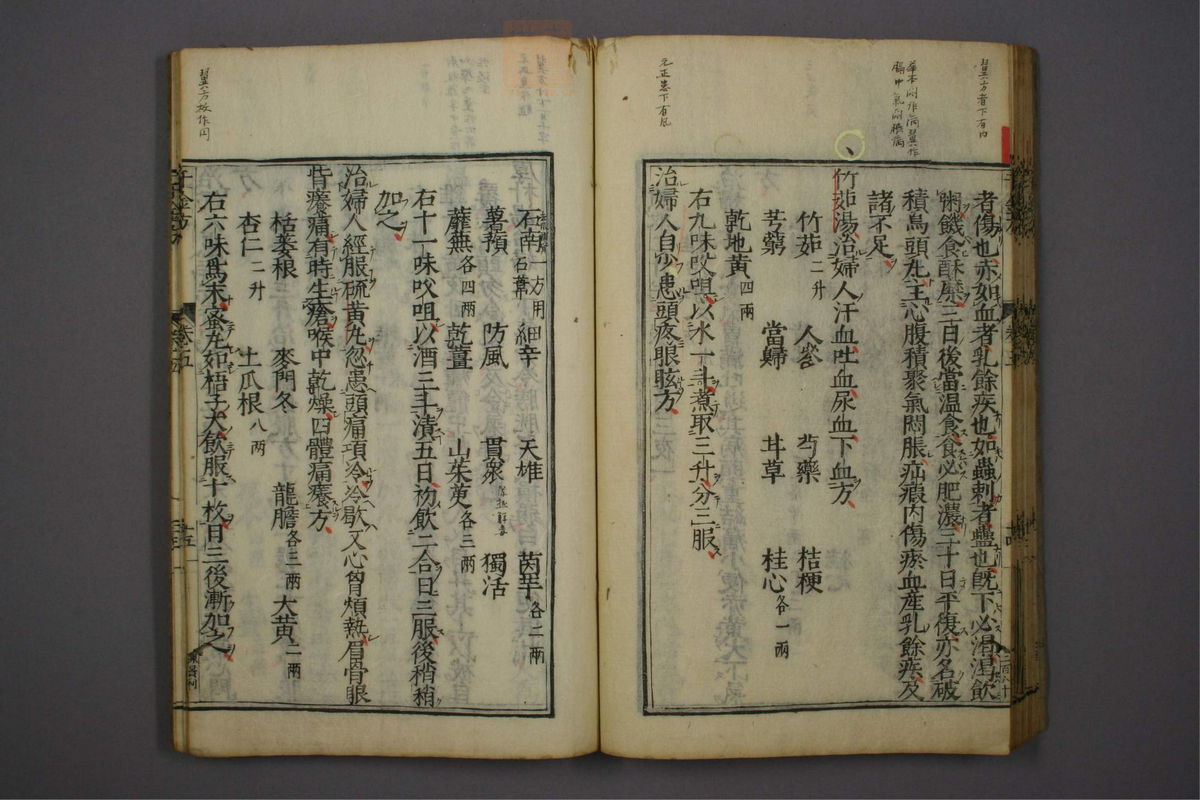 翼方者下有内
者傷也赤如血者乳餘疾也如蟲刺者蠱也既下必渴渴飲
粥饑食酥糜三日後當温食食必肥濃三十日平復亦名破
積烏頭丸主心腹積聚氣悶脹疝瘕内傷瘀血産乳餘疾及
諸不足
竹茹湯治婦人汗血吐血尿血下血方
竹茹二升 人參 芍藥 桔梗
芎藭 當歸 甘草 桂心各一兩
乾地黄四兩
右九味㕮咀以水一斗煮取三升分三服
治婦人自少患頭疼眼眩方
石南一方用石葦 細辛 天雄 茵芋各二兩
薯蕷 防風 貫衆 獨活
蘼蕪各四兩 乾薑 山茱萸各三兩
右十一味㕮咀以酒三斗漬五日初飲二合日三服後稍稍
加之
治婦人經服硫黄丸忽患頭痛項冷冷歇又心胷煩熱眉骨眼
眥癢痛有時生瘡喉中乾燥四體痛癢方
栝蔞根 麥門冬 龍膽各三兩 大黄二兩
杏仁二升 土瓜根八兩
右六味爲末蜜丸如梧子大飲服十枚日三後漸加之
翼方放作用
千金方
卷五